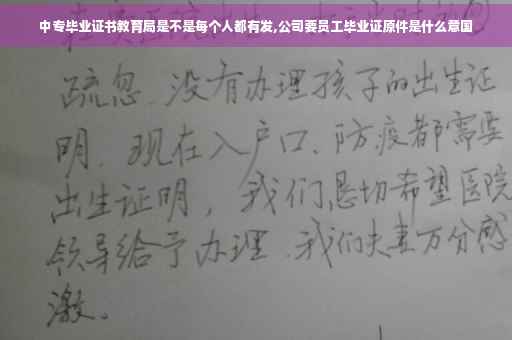 中专毕业证书教育局是不是每个人都有发,公司要员工毕业证原件是什么意图
疏忽、没有办理孩子的出生证
明、现在入户口、防疫都需要
出生证明，我们恳切希望医院
领导给予办理、我们夫妻万分感
激。